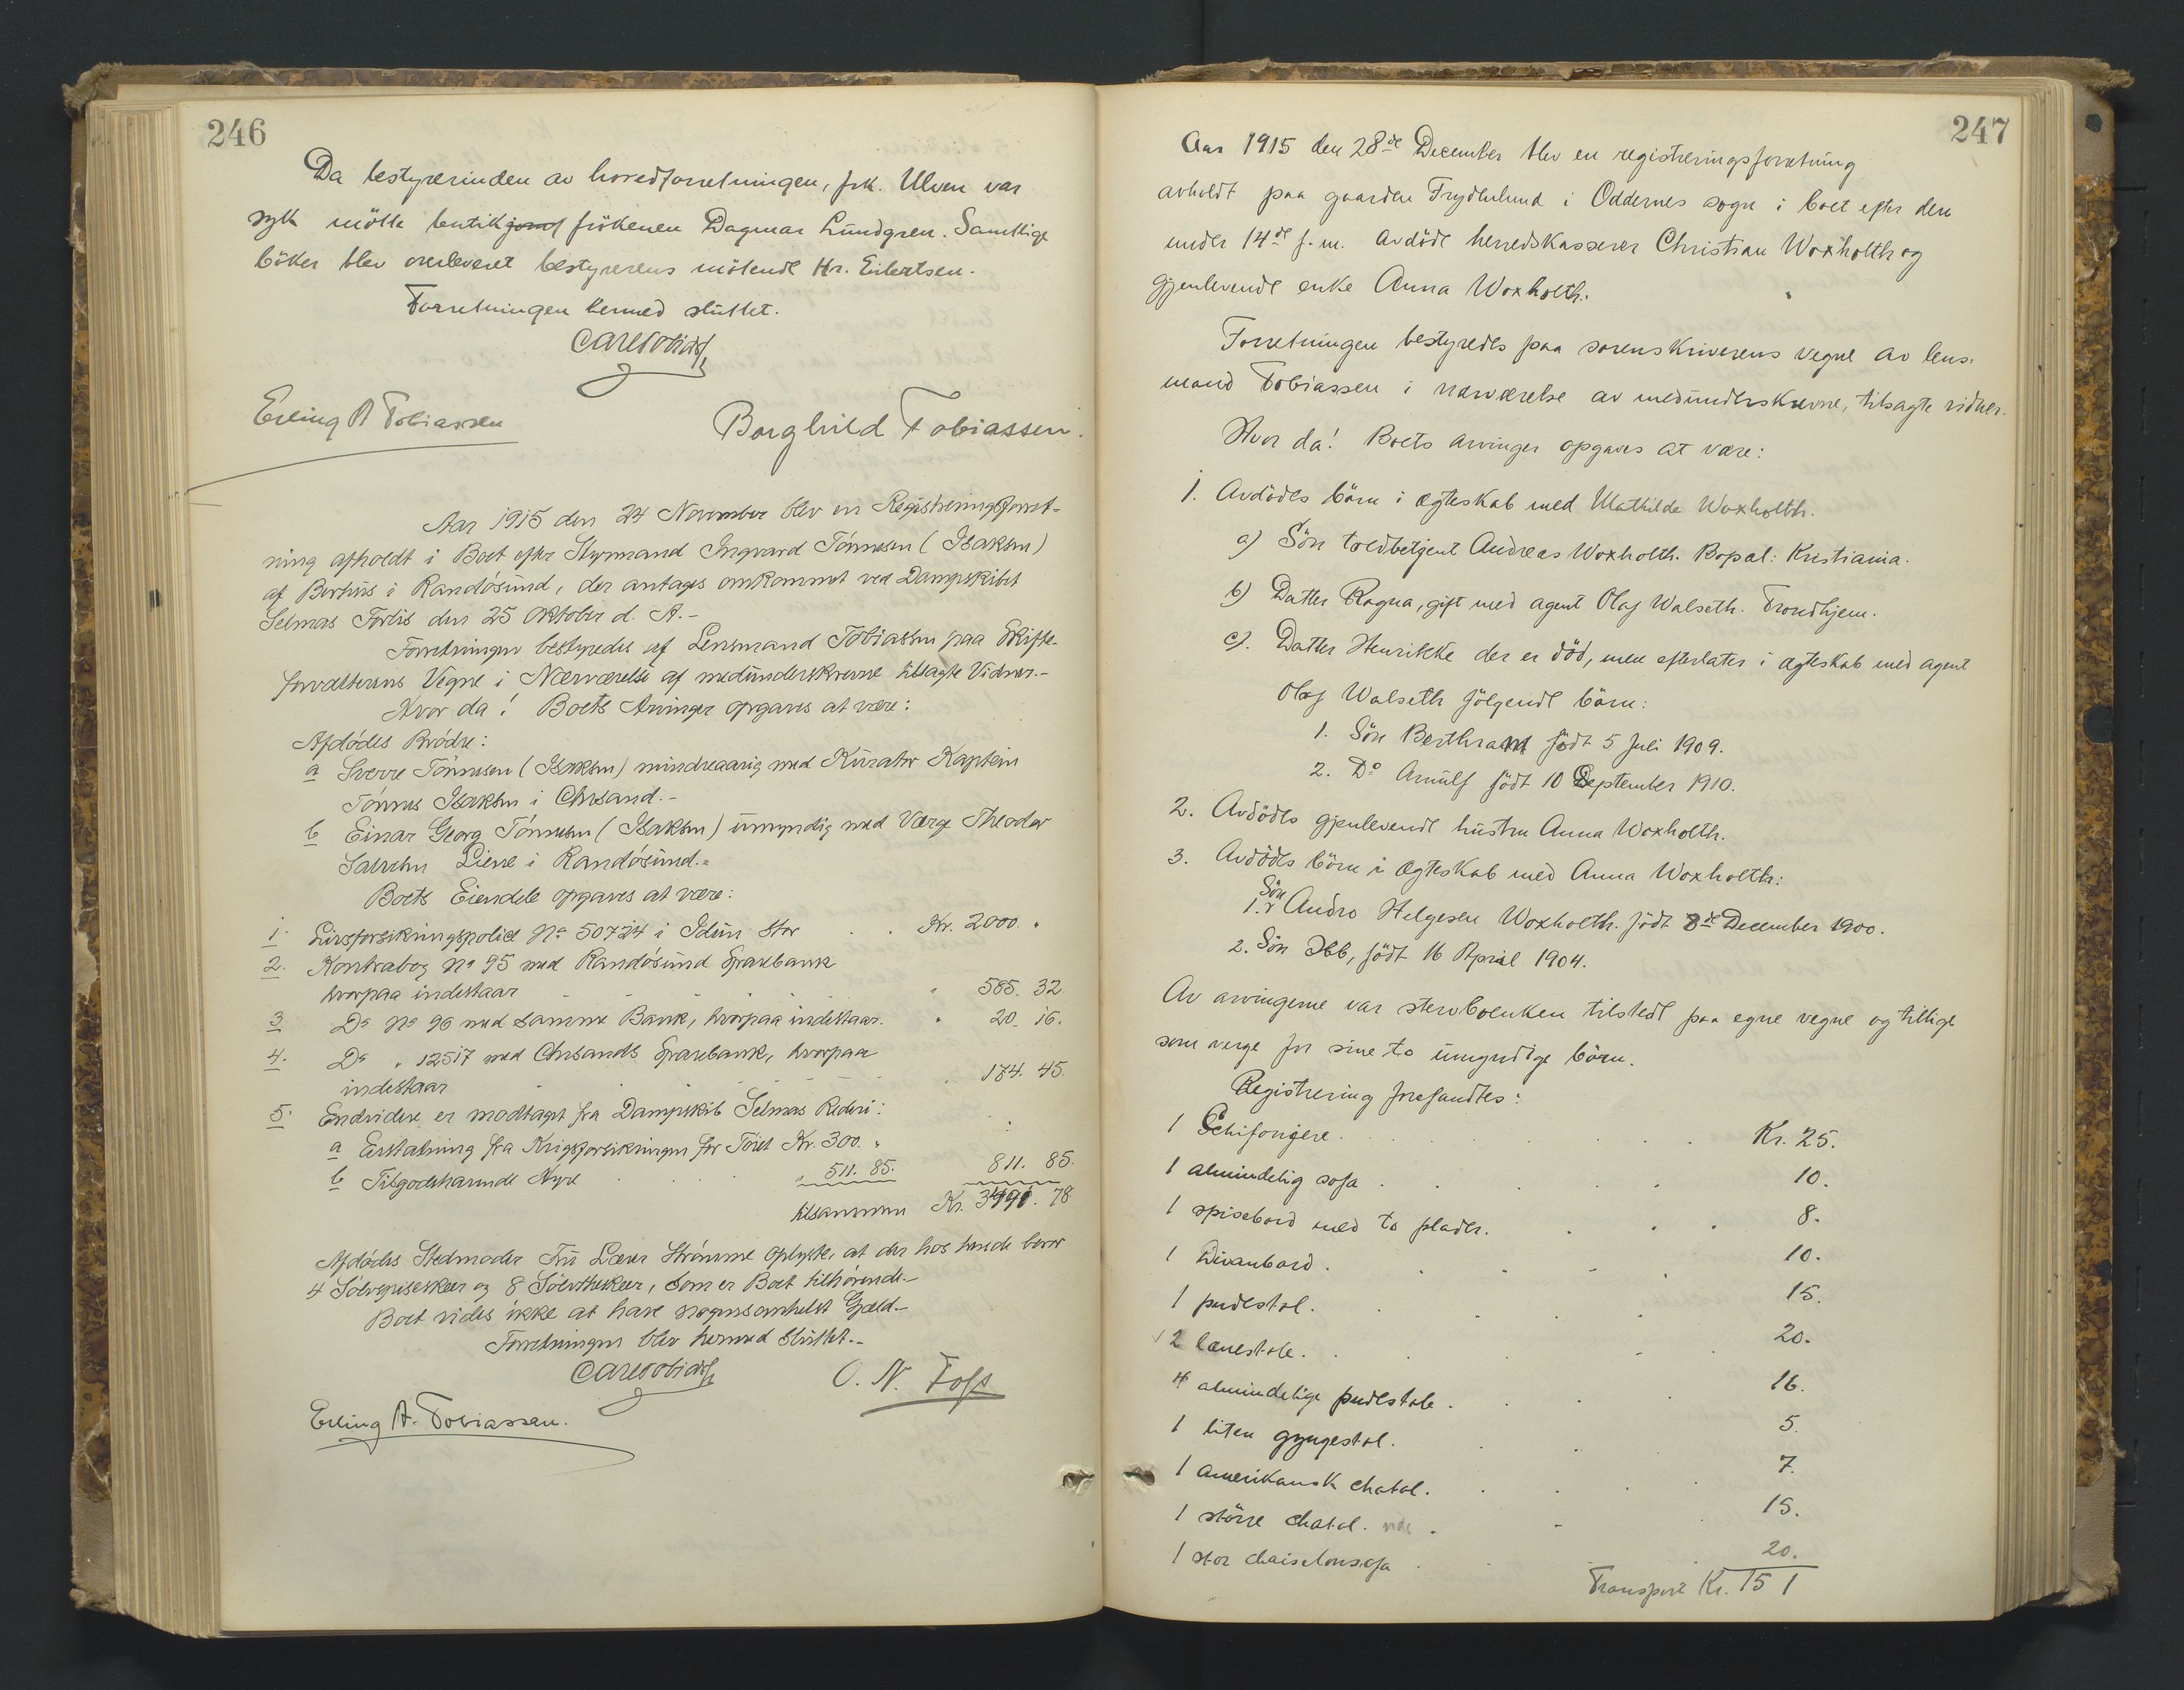 246
Da bestyrerinden av hovedforretningen, frk. Ulven var
syk mötte butikfrökenen Dagmar Lundgren. Samtlige
böker blev overleveret bestyrerens mötende Hr. Eilertsen.
Forretningen hermed sluttet.
Carl Tobias
Erling A Tobiassen
Borghild Tobiassen.
Aar 1915 den 24 November blev en Registreringsforret-
ning afholdt i Boet efter Styrmand Ingvard Tönnesen (Isaksen)
af i Randösund, der antages omkommet ved Dampskibet
Selmas Forlis den 25 Oktober d. A.-
Forretningen bestyredes af Lensmand Tobiassen paa Skifte-
forvalterens Vegne i Nærværelse af medunderskrevne tilsagte Vidner.-
Hvor da! Boets Arvinger opgaves at være:
Afdödes Brödre:
a Sverre Tönnesen (Isaksen) mindreaarig med Kurator Kaptein
Tönnes Isaksen i Chrsand.-
b Einar Georg Tönnesen (Isaksen) umyndig med Værge Theodor
Liene i Randösund.-
Boets Eiendele opgaves at være:
1. Livsforsikringspolice No 50724 i Idun stor . . Kr. 2000. "
2. Kontrabog No 95 med Randösund Sparebank
hvorpaa indestaar " 585. 32.
3 Do No 96 med samme Bank, hvorpaa indestaar. " 20. 16.
4. Do " 12517 med Chrsands Sparebank, hvorpaa
indestaar . 174. 45.
5. Endvidere er modtaget fra Dampskib Selmas Rederi:
a Erstatning fra Krigsforsikringen for Töiet Kr. 300. "
b Tilgodehavende Hyre " 511. 85. 811. 85.
tilsammen Kr. 78
Afdödes Stedmoder Fru Strömme oplyste, at der hos hende beror
4 Sölvspiseskeer og 8 Sölvtheskeer, som er Boet tilhörende.-
Boet vides ikke at have nogensomhelst Gjæld.-
Forretningen blev hermed sluttet.-
Carl Tobias
O. N. Foss
Erling A. Tobiassen.
247
Aar 1915 den 28de December blev en registreringsforretning
avholdt paa gaarden Frydenlund i Oddernes sogn i boet efter den
under 14de f.m. avdöde herredskasserer Christian Woxholth og
gjenlevende enke Anna Woxholth.
Forretningen bestyredes paa sorenskriverens vegne av lens-
mand Tobiassen i nærværelse av medunderskrevne, tilsagte vidner.
Hvor da! Boets arvinger opgaves at være:
1. Avdödes börn i ægteskab med Mathilde Woxholth.
a) Sön toldbetjent Andreas Woxholth. Bopæl: Kristiania.
b) Datter Ragna, gift med agent Olaf Walseth. Trondhjem.
c). Datter Henrikke der er död, men efterlater i ægteskab med agent
Olaf Walseth fölgende börn:
1. Sön Berthram födt 5 Juli 1909.
2. Do Arnulf födt 10 September 1910.
2. Avdödes gjenlevende hustru Anna Woxholth.
3. Avdödes börn i ægteskab med Anna Woxholth:
1. Sön Andro Helgesen Woxholth. födt 8de December 1900.
2. Sön Ibb, födt 16 April 1904.
Av arvingerne var stervboenken tilstede paa egne vegne og tillige
som verge for sine to umyndige börn.
Registrering forefandtes:
1 Schifongere. . . . . Kr. 25.
1 almindelig sofa . . . . 10.
1 spisebord med to plader. . . . 8.
1 Divanbord. . . . . 10.
1 pudestol. . . . . 15.
2 lænestole. . . . . 20.
4 almindelige pudestole. . . . 16.
1 liten gyngestol. . . . 5.
1 amerikansk chatol. . . . . 7.
1 större chatol. . . . 15.
1 stor chaiselonsofa . . . 20.
Transport Kr. 151